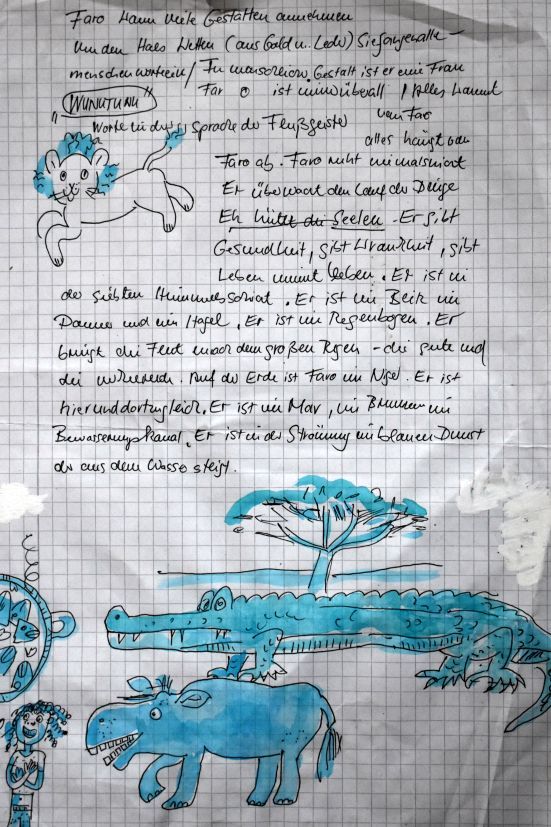 Faro kann viele Gestalten annehmen
Um den Hals Ketten (aus Gold u. Leder)
menschen In menschlicher Gestalt ist er eine Frau
Faro ist immer überall / Alles kommt
von Faro
"WUNUTUNU"
Worte in der Sprache der Flußgeister
alles hängt von
Faro ab. Faro ruht niemals
Er überwacht den Lauf der Dinge
Er hütet die Seelen. Er gibt
Gesundheit, gibt Krankheit, gibt
Leben nimmt Leben. Er ist in
der siebten Himmelsschicht. Er ist im Blitz im
Donner und im Hagel. Er ist im Regenbogen. Er
bringt die Flut nach dem großen Regen - die gute und
die verheerende. Auf der Erde ist Faro im Niger. Er ist
hier und dort zugleich. Er ist im Meer, im Brunnen im
Bewässerungskanal. Er ist in der Strömung im blauen Dunst
der aus dem Wasser steigt.